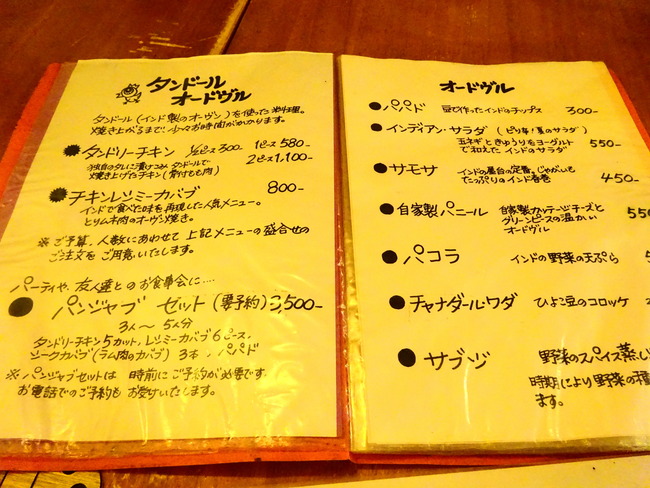 タンドール
オードヴル
タンドール(インド製のオーヴン)を使った料理。
焼き上がるまで、少々お時間がかかります。
タンドリーチキン ½ピース 300 1ピース 580-
2ピース 1,100-
独自のタレに漬けこみタンドールで
焼き上げたチキン(骨付もも肉)
チキンレシミーカバブ 800-
インドで食べた味を再現した人気メニュー。
とりムネ肉のオーヴン焼き。
※ご予算、人数にあわせて上記メニューの盛合せの
ご注文をご用意いたします。
パーティや、友人達とのお食事会に…
パンジャブ セット(要予約) 3,500-
3人〜5人分
タンドリーチキン5カット、レシミーカバブ6ピース、
シークカバブ(ラム肉のカバブ) 3本、パパド
※パンジャブセットは 時前にご予約が必要です
お電話でのご予約も お受けいたします。
オードヴル
パパド 豆で作ったインドのチップス 300-
インディアン・サラダ(ピリ辛!夏のサラダ)
玉ネギときゅうりをヨーグルト 550-
で和えた インドのサラダ
サモサ インドの屋台の定番。じゃがいも
たっぷりのインド春巻 450-
自家製パニール 自家製カッテージチーズと 550
グリーンピースの温かい
オードヴル
パコラ インドの野菜の天ぷら 5
チャナダール・ワダ ひよこ豆のコロッケ
サブッジ 野菜のスパイス蒸し
時期により野菜の種
ます。